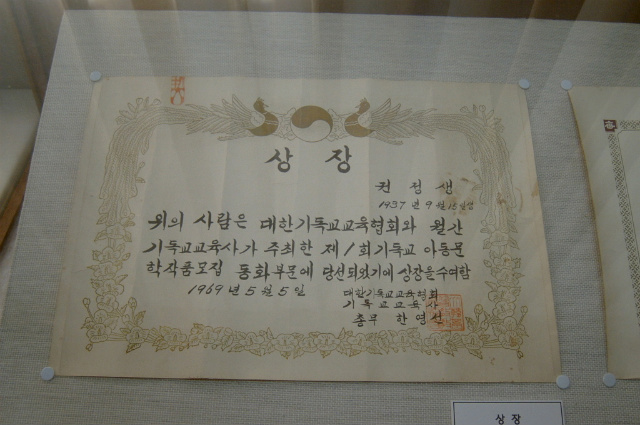 상 장
권 정 생
1937년 9월 15일생
위의 사람은 대한기독교교육협회와 월간
기독교교육사가 주최한 제1회기독교 아동문
학작품모집 동화부문에 당선되었기에 상장을수여함
1969년 5월 5일
대한기독교교육협회
기독교교육사
총무 한영선
상 장